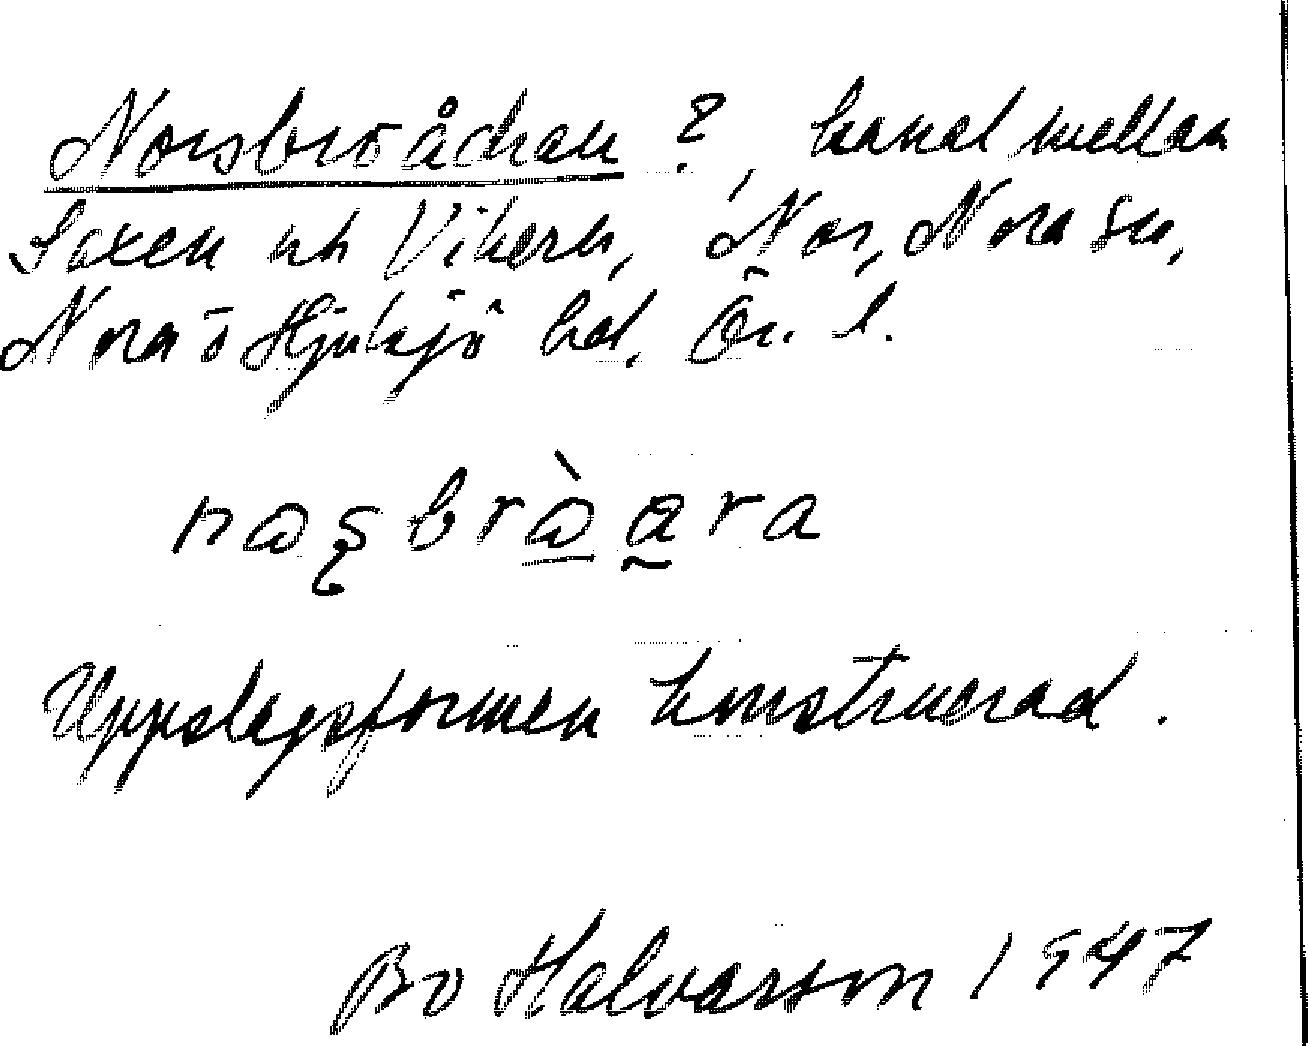 Norsbroådran ?, kanal mellan
Saxen och Vikern, Nor, Nora sn,
Nora o Hjulsjö hd. Ör. l.
naʂbrò̱a̰ra
Uppslagsformen konstruerad.
Bo Halvarson 1947